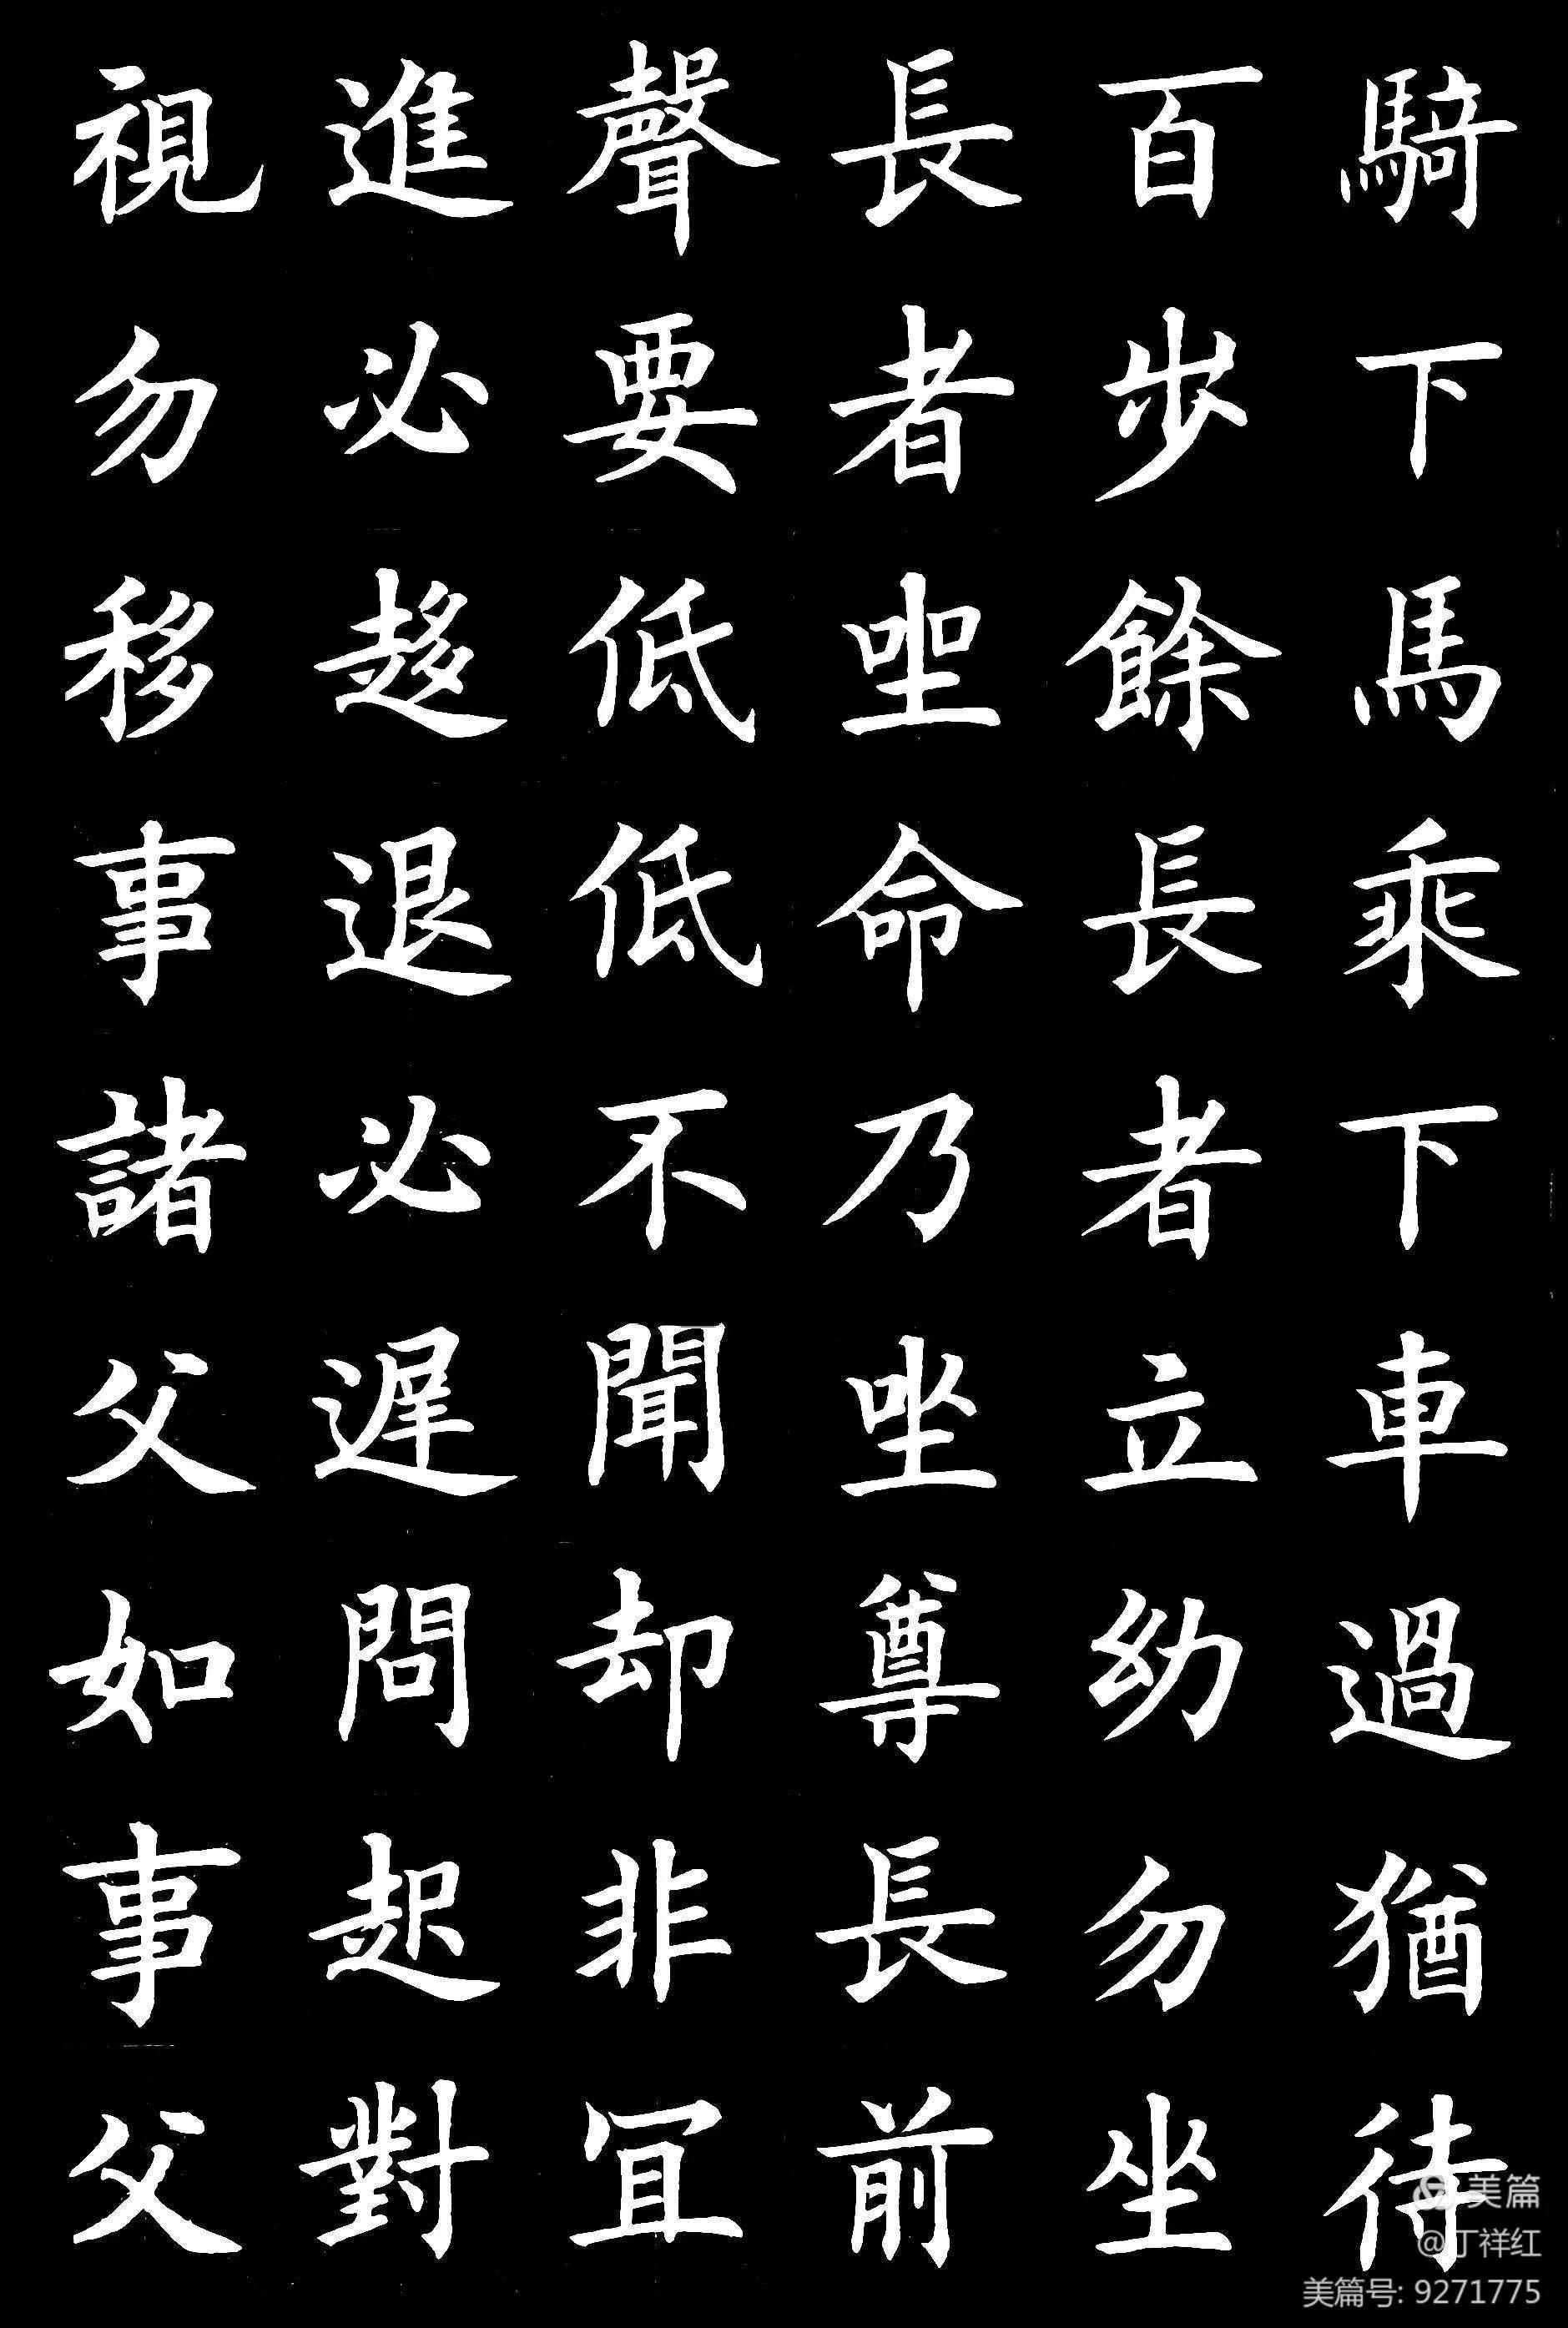 騎下馬乘下車過猶待
百步餘長者立幼勿坐
長者坐命乃坐尊長前
聲要低低不聞却非宜
進必趨退必遲問起對
視勿移事諸父如事父
美篇
@丁祥红
美篇号: 9271775